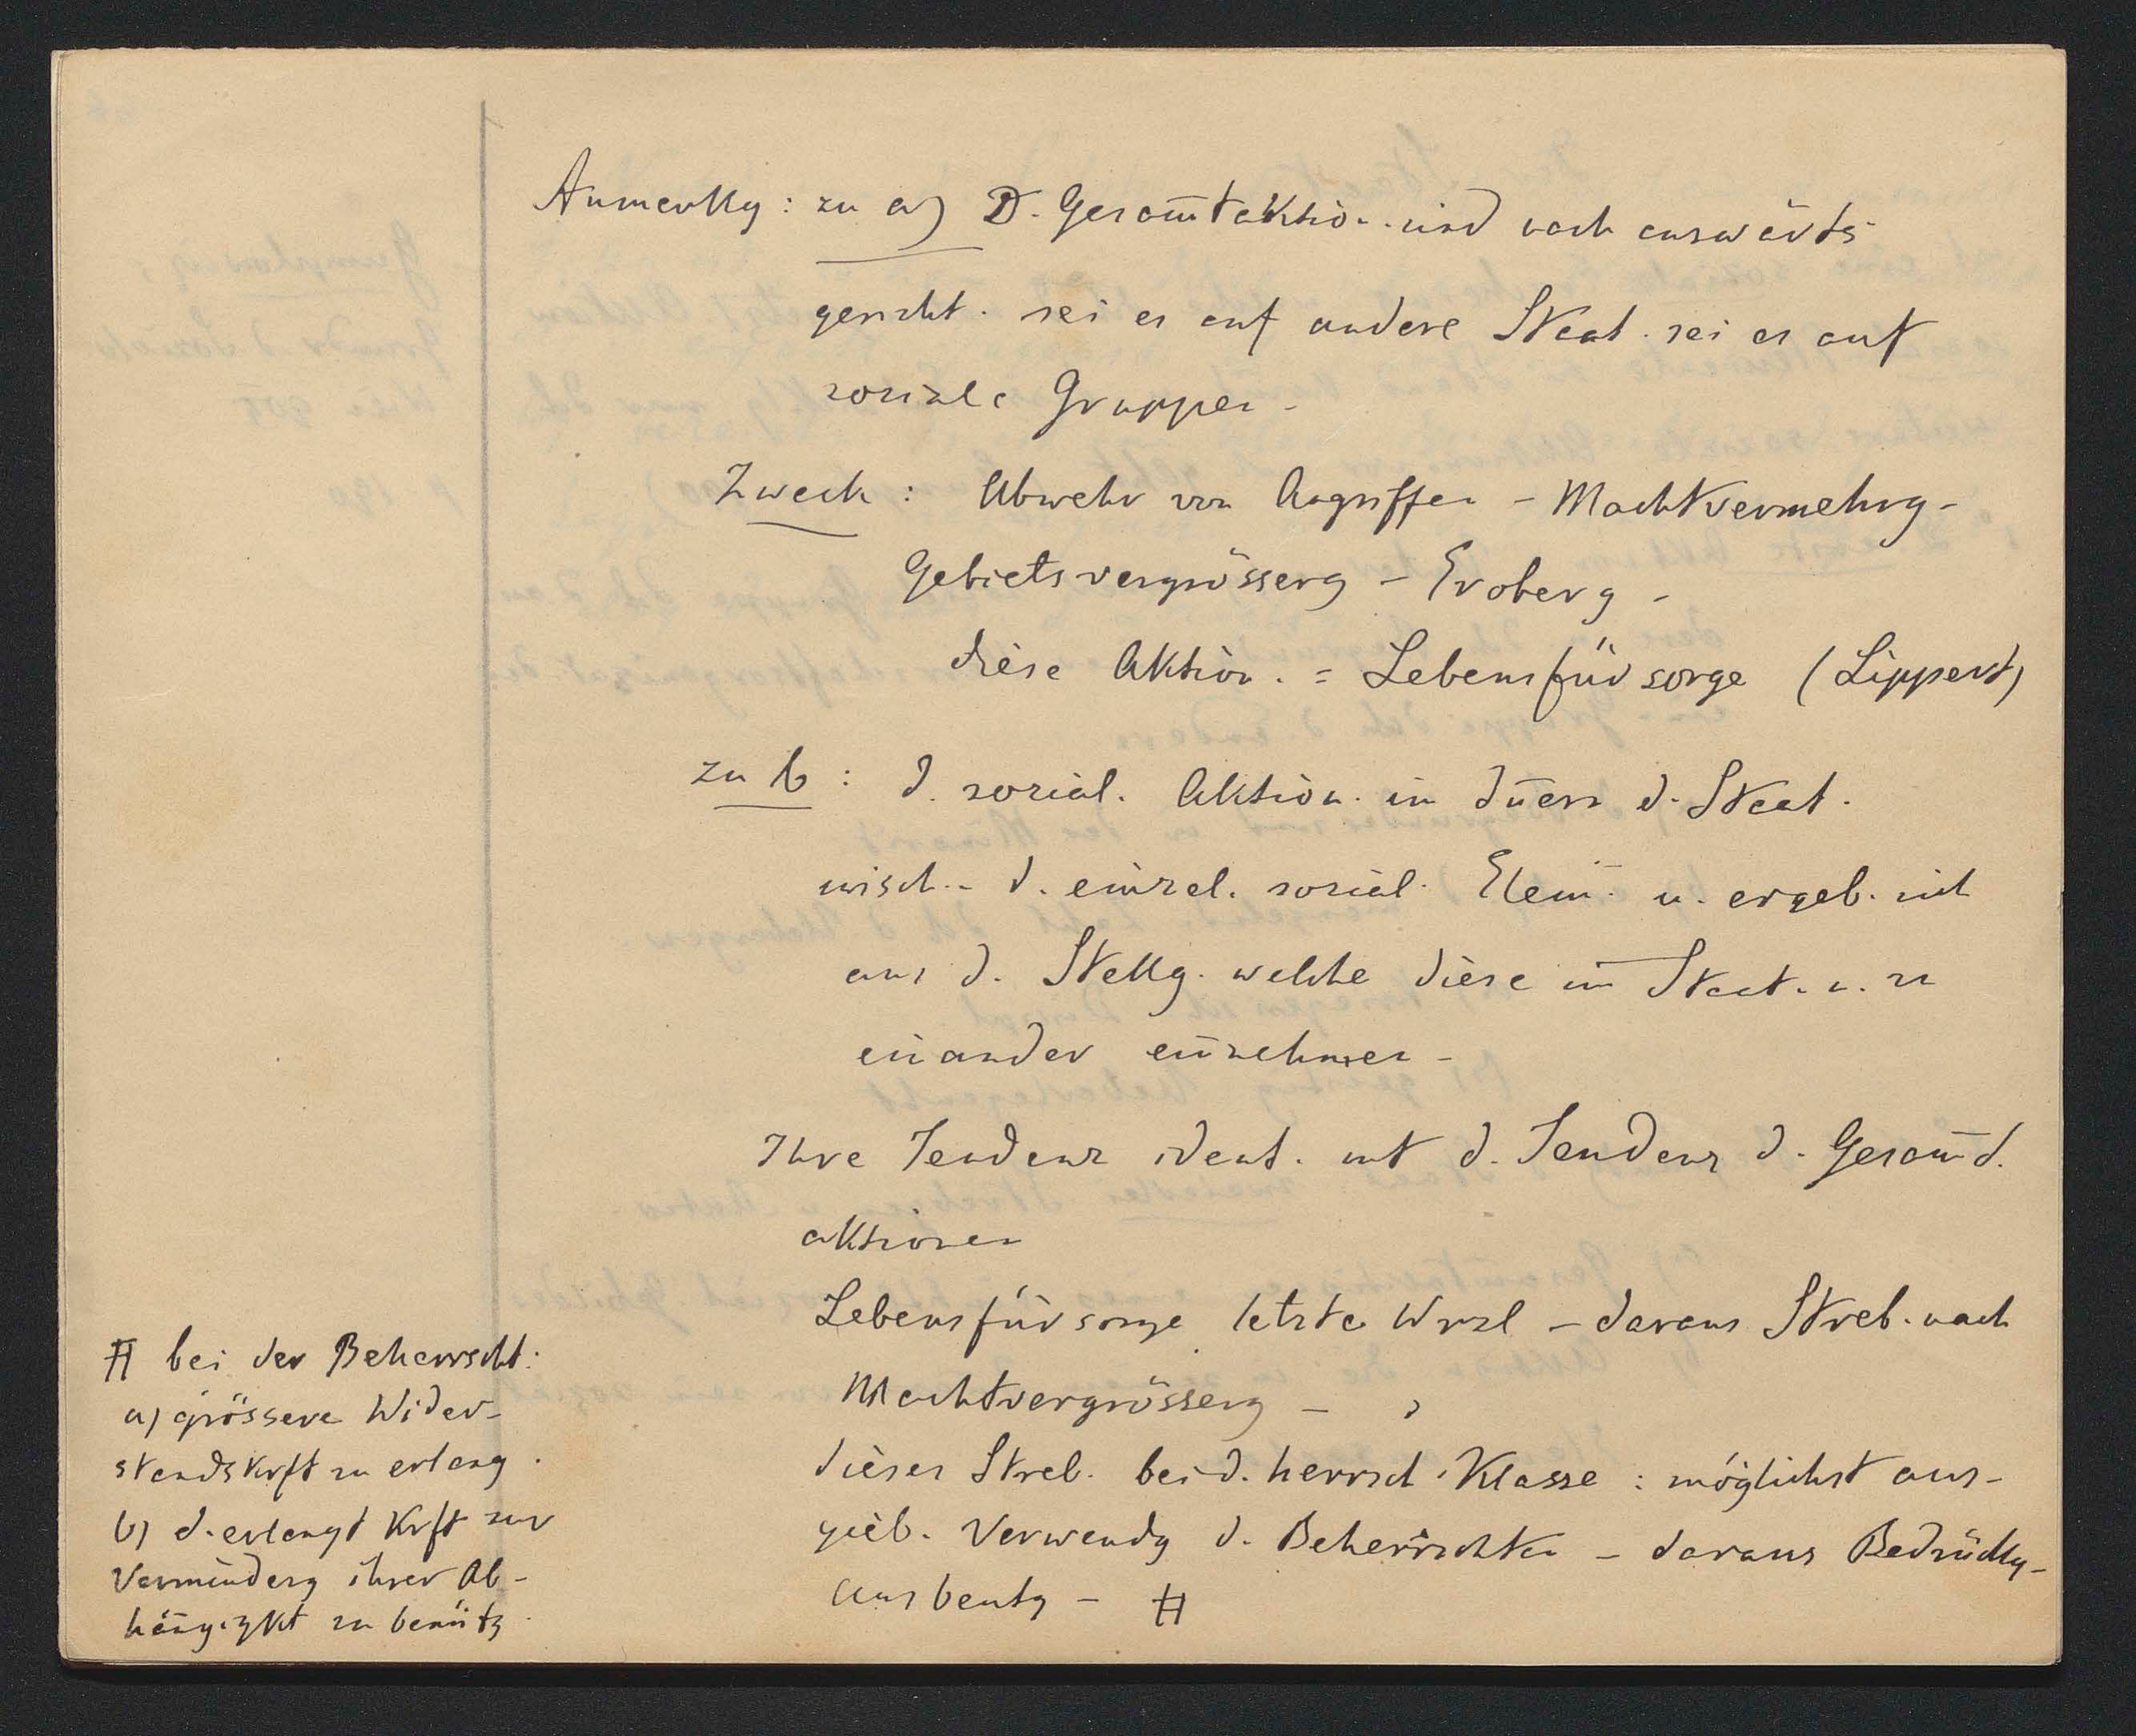 Anmerkkg: zu a) D. Gesam̅taktion. sind nach auswärts
gericht. sei es auf andere Staat. sei es auf
soziale Gruppen -
Zweck: Abwehr von Angriffen - Machtvermehrg -
Gebietsvergrösserg - Eroberg -
diese Aktion. = Lebensfürsorge (Lippert)
zu b: d. sozial. Aktion. im In̅ern d. Staat.
zwisch. - d. einzel. sozial. Elem̅. u. ergeb. sich
aus d. Stellg. welche diese im Staat. u. zu
einander einnehmen -
Ihre Tendenz ident. mit d. Tendenz d. Gesam̅t.
aktionen
Lebensfürsorge letzte Wrzl - daraus Streb. nach
Machtvergrösserg -
dieses Streb. bei d. herrsch. Klasse: möglichst aus-
gieb. Verwendg d. Beherrschten - daraus Bedrückg -
Ausbeutg - #
# bei der Beherrscht:
a) grössere Wider-
standskrft zu erlang.
b) d. erlangt Krft zur
Verminderg ihrer Ab-
hängigkt zu benütz.